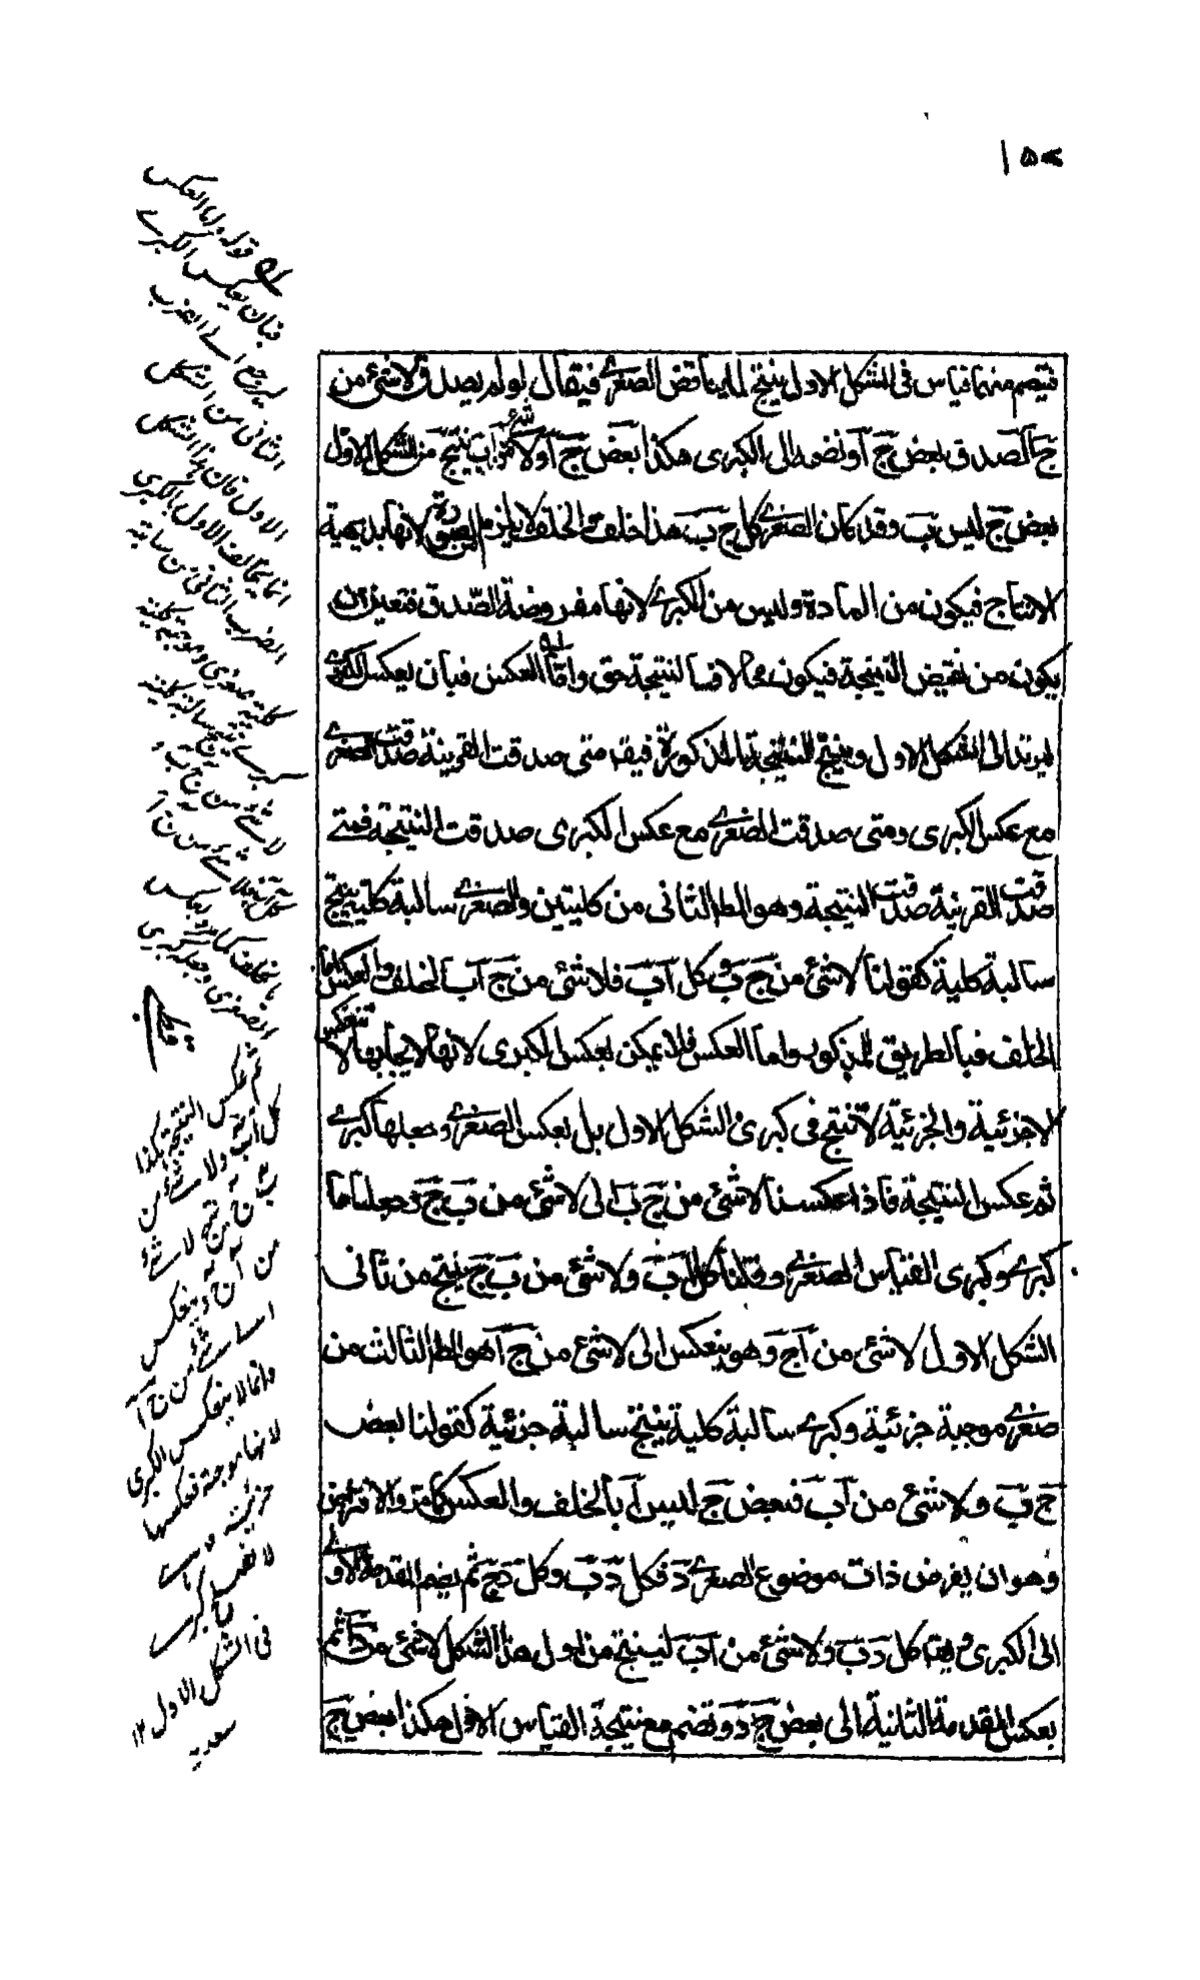 ١٥٧
فينتظم منهما قياس فى الشكل الاول ينتج لما يناقض الصغرے فيقال لو لم يصدق لاشئ من
ج آ لصدق بعض ج آ ونضمه الى الكبرى هكذا بعض ج آ ولاشئ من آ ب ينتج من الشكل الاول
بعض ج ليس ب وقد كان الصغرے كل ج ب هذا خلف والخلف لا يلزم من الصورة لانها بديهية
الانتاج فيكون من المادة وليس من الكبرے لانها مفروضة الصدق فتعين ان
يكون من نقيض النتيجة فيكون محالا فالنتيجة حق واما العكس فبان يعكس الكبرے
ليرتد الى الشكل الاول وينتج النتيجة المذكورة فيقه متى صدقت القرينة صدقت الصغرے
مع عكس الكبرى ومتى صدقت الصغرے مع عكس الكبرى صدقت النتيجة فمتے
صدقت القرينة صدقت النتيجة وهو المط الثانى من كليتين والصغرے سالبة كلية ينتج
سالبة كلية كقولنا لاشئ من ج ب وكل آ ب فلاشئ من ج آ بالخلف والعكس اما
الخلف فبالطريق المذكور واما العكس فلا يمكن بعكس الكبرى لانها لايجابها لا تنعكس
الا جزئية والجزئية لا تنتج فى كبرى الشكل الاول بل بعكس الصغرے وجعلها كبرے
ثم عكس النتيجة فاذا عكسنا لاشئ من ج ب الى لاشئ من ب ج وجعلناها
كبرے وكبرى القياس الصغرے وقلنا كل آ ب ولاشئ من ب ج ينتج من ثانى
الشكل الاول لاشئ من آ ج وهو ينعكس الى لاشئ من ج آ هو المط الثالث من
صغرے موجبة جزئية وكبرے سالبة كلية ينتج سالبة جزئية كقولنا بعض
ج ب ولاشئ من آ ب فبعض ج ليس آ بالخلف والعكس كما مر والافتراض
وهو ان يفرض ذات موضوع الصغرے د فكل د ب وكل د ج ثم يضم المقدمة الاولے
الى الكبرى ويقه كل د ب ولاشئ من آ ب لينتج من اول هذا الشكل لاشئ من د آ ثم
بعكس المقدمة الثانية الى بعض ج د ونضم مع نتيجة القياس الاول هكذا بعض ج
قوله واما العكس
فبان يعكس الكبرے
ليرجع الے الضرب
الثانى من الشكل
الاول فان هذا الشكل
انما يخالف الاول بالكبرى
الضرب الثانى من سالبة
كلية صغرى وموجبة كلية
كبرے ينتج سالبة كلية
لاشئ من ج ب و
كل آ ب فلاشئ من ج آ
بالخلف كما مر وبعكس
الصغرى وجعله كبرى
ثم عكس النتيجة هكذا
كل آ ب ولاشئ من
ب ج ينتج لاشئ
من آ ج وينعكس
الے لاشئ من ج آ
وانما لا ينعكس الكبرى
لانها موجبة فعكسها
جزئية
لا تصلح كبرے
فى الشكل الاول ١٢
سعديه